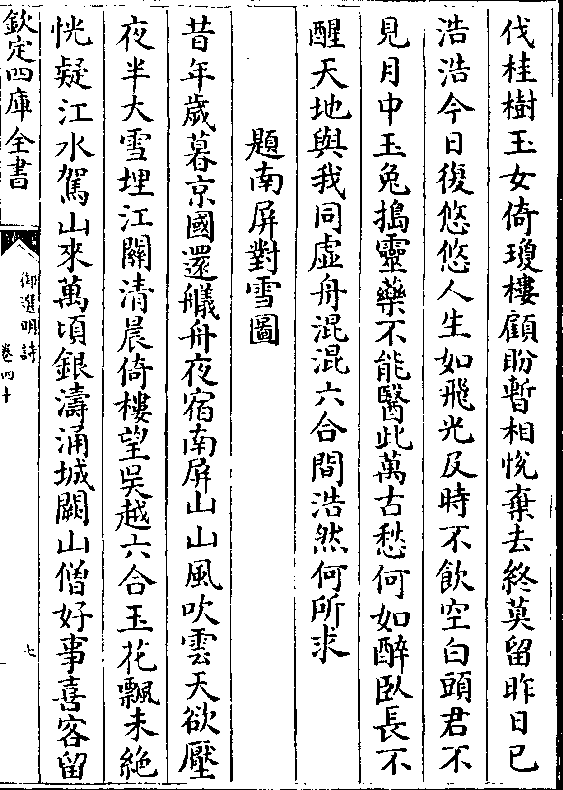 伐桂樹玉女倚瓊樓顧盼暫相悅棄去終莫留昨日已
浩浩今日復悠悠人生如飛光及時不飲空白頭君不
見月中玉兔搗靈藥不能醫此萬古愁何如醉臥長不
醒天地與我同虛舟混混六合間浩然何所求
題南屏對雪圖
昔年歲暮京國還艤舟夜宿南屏山山風吹雲天欲壓
夜半大雪埋江關清晨倚樓望吳越六合玉花飄未絶
恍疑江水駕山來萬頃銀濤涌城闕山僧好事喜客留
欽定四庫全書
御選明詩
卷四十
七